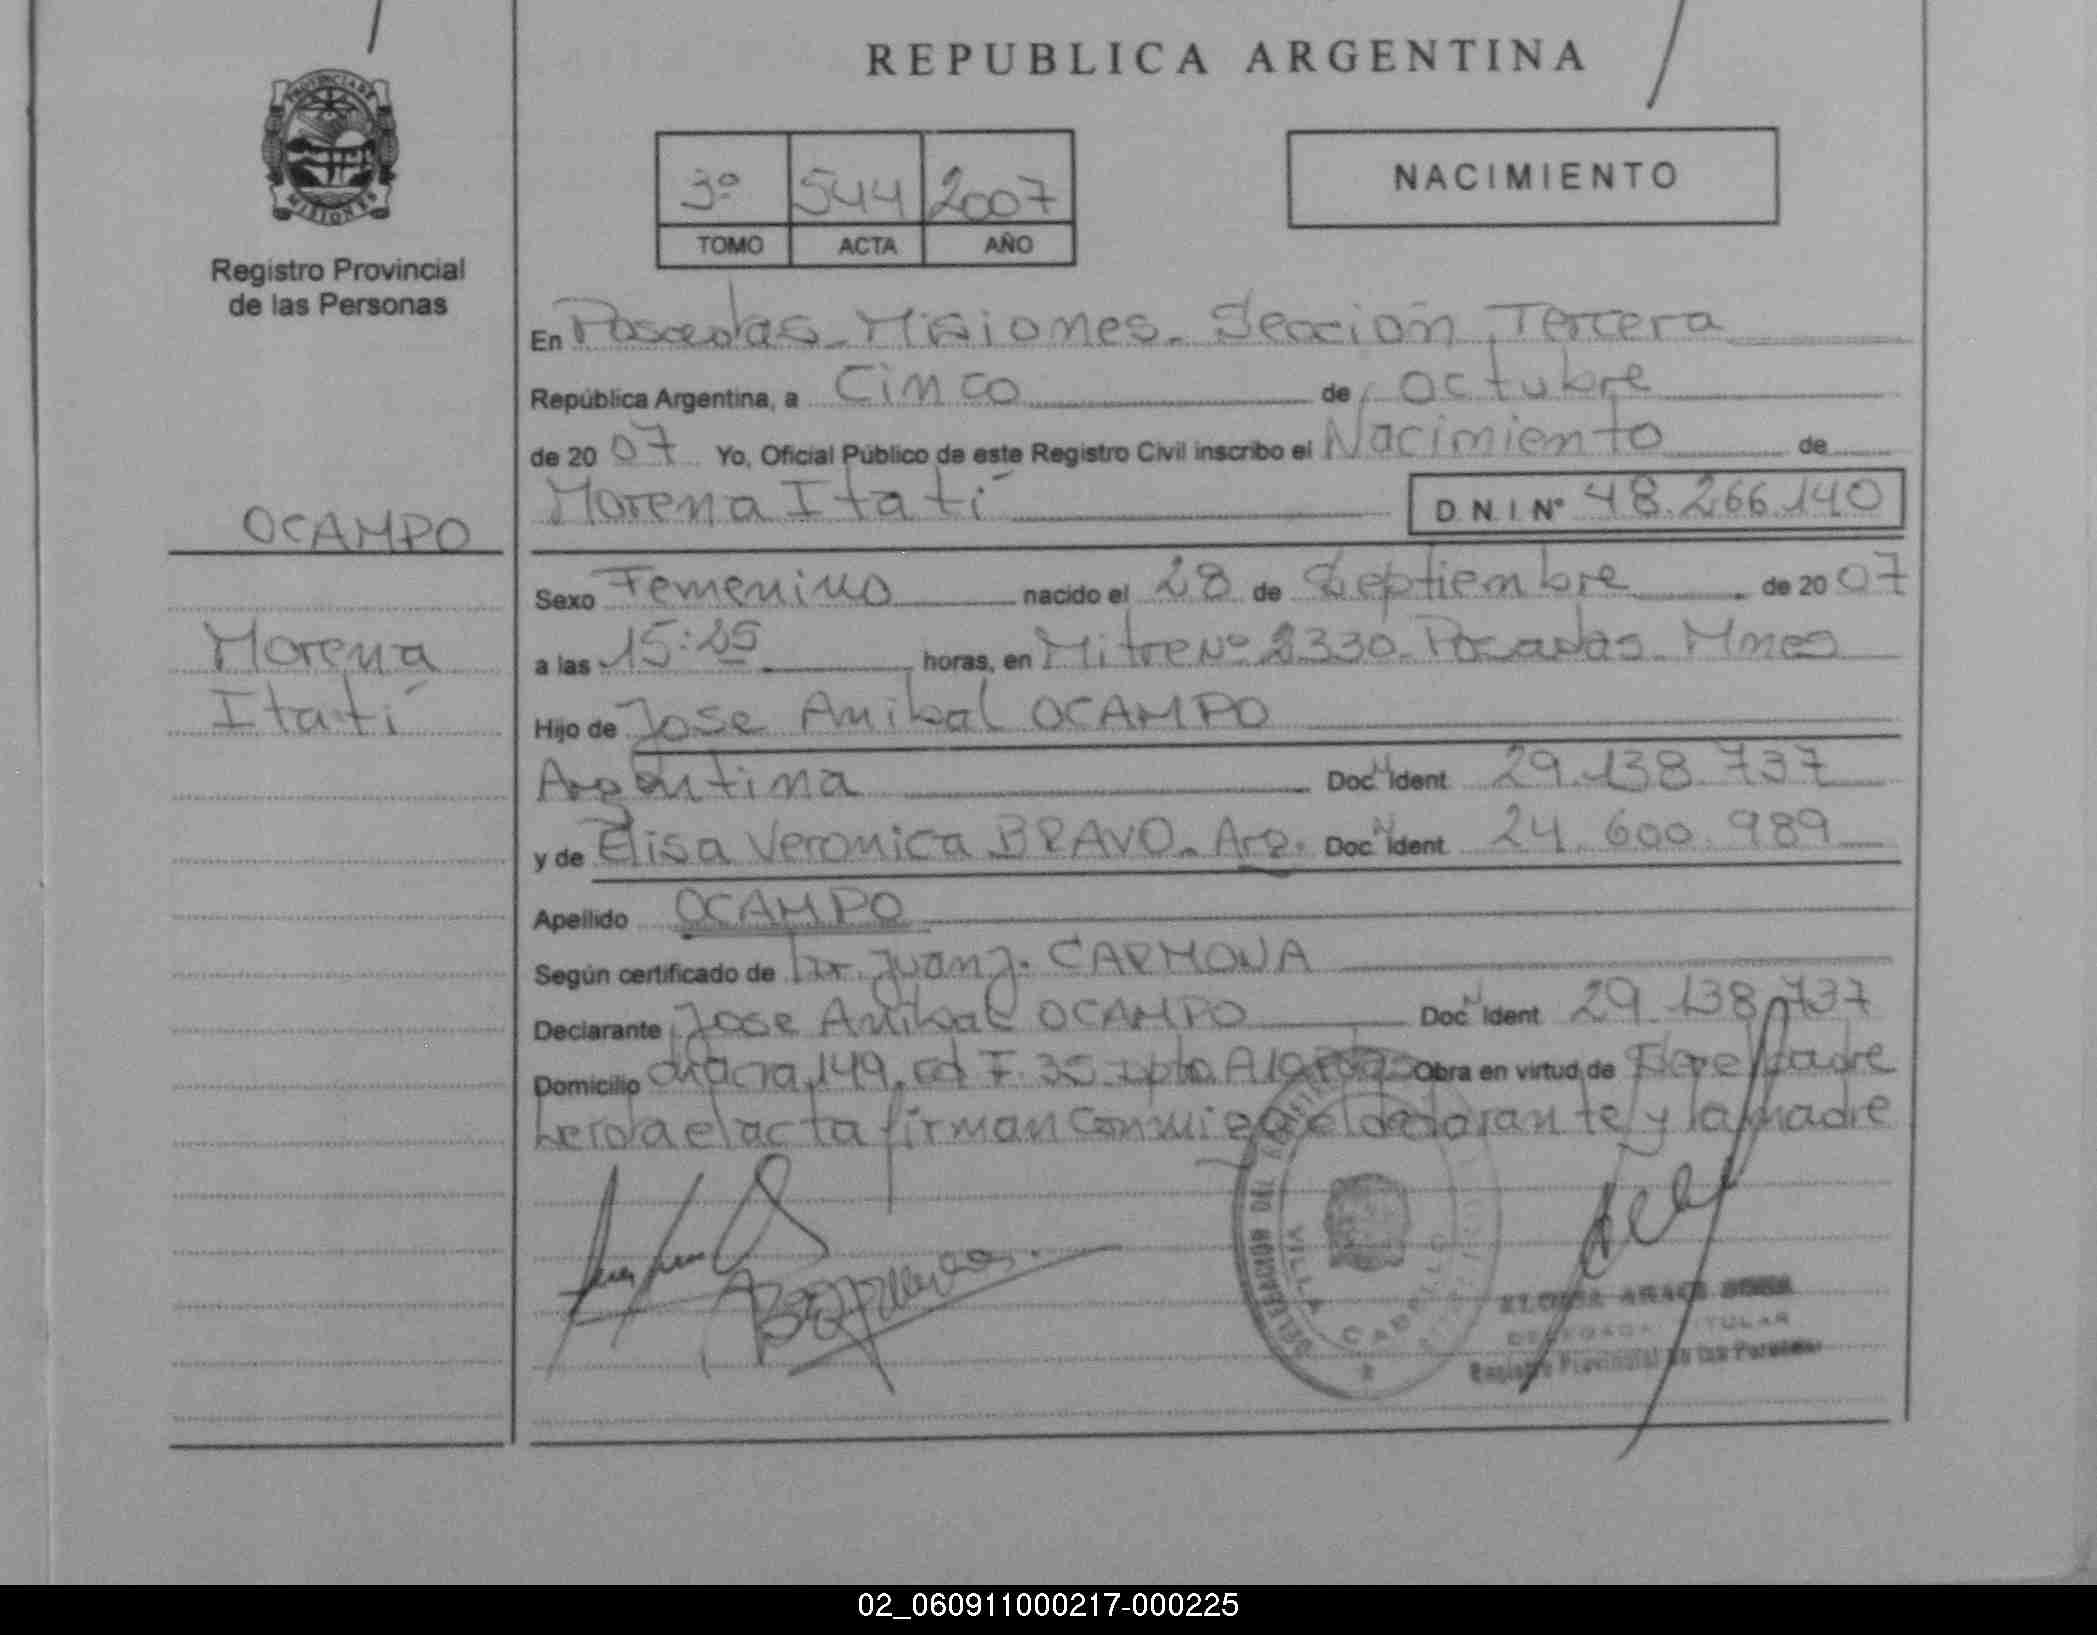 REPUBLICA ARGENTINA
PROVINCIA DE
MISIONES
Registro Provincial
de las Personas
3º 544 2007
TOMO ACTA AÑO
NACIMIENTO
En Posadas - Misiones. Sección Tercera
República Argentina, a Cinco de octubre
de 2007 Yo, Oficial Público de este Registro Civil inscribo el Nacimiento de
Morena Itatí
D N I Nº 48.266.140
OCAMPO
Morena
Itatí
Sexo Femenino nacido el 28 de Septiembre de 2007
a las 15:25 horas, en Mitre Nº 2330. Posadas. Mnes
Hijo de Jose Anibal OCAMPO
Argentina Doc. N Ident 29.138.737
y de Elisa Veronica BRAVO. Arg. Doc. N Ident 24.600.989
Apellido OCAMPO
Según certificado de Dr. Juan J. CARMONA
Declarante Jose Anibal OCAMPO Doc. N Ident 29.138.737
Domicilio chacra 149, 35 Obra en virtud de padre
Leida el acta firman conmigo el declarante y la madre
DELEGACION DEL
VILLA CABELLO
DELEGADA TITULAR
Registro Provincial de las Personas
02_060911000217-000225